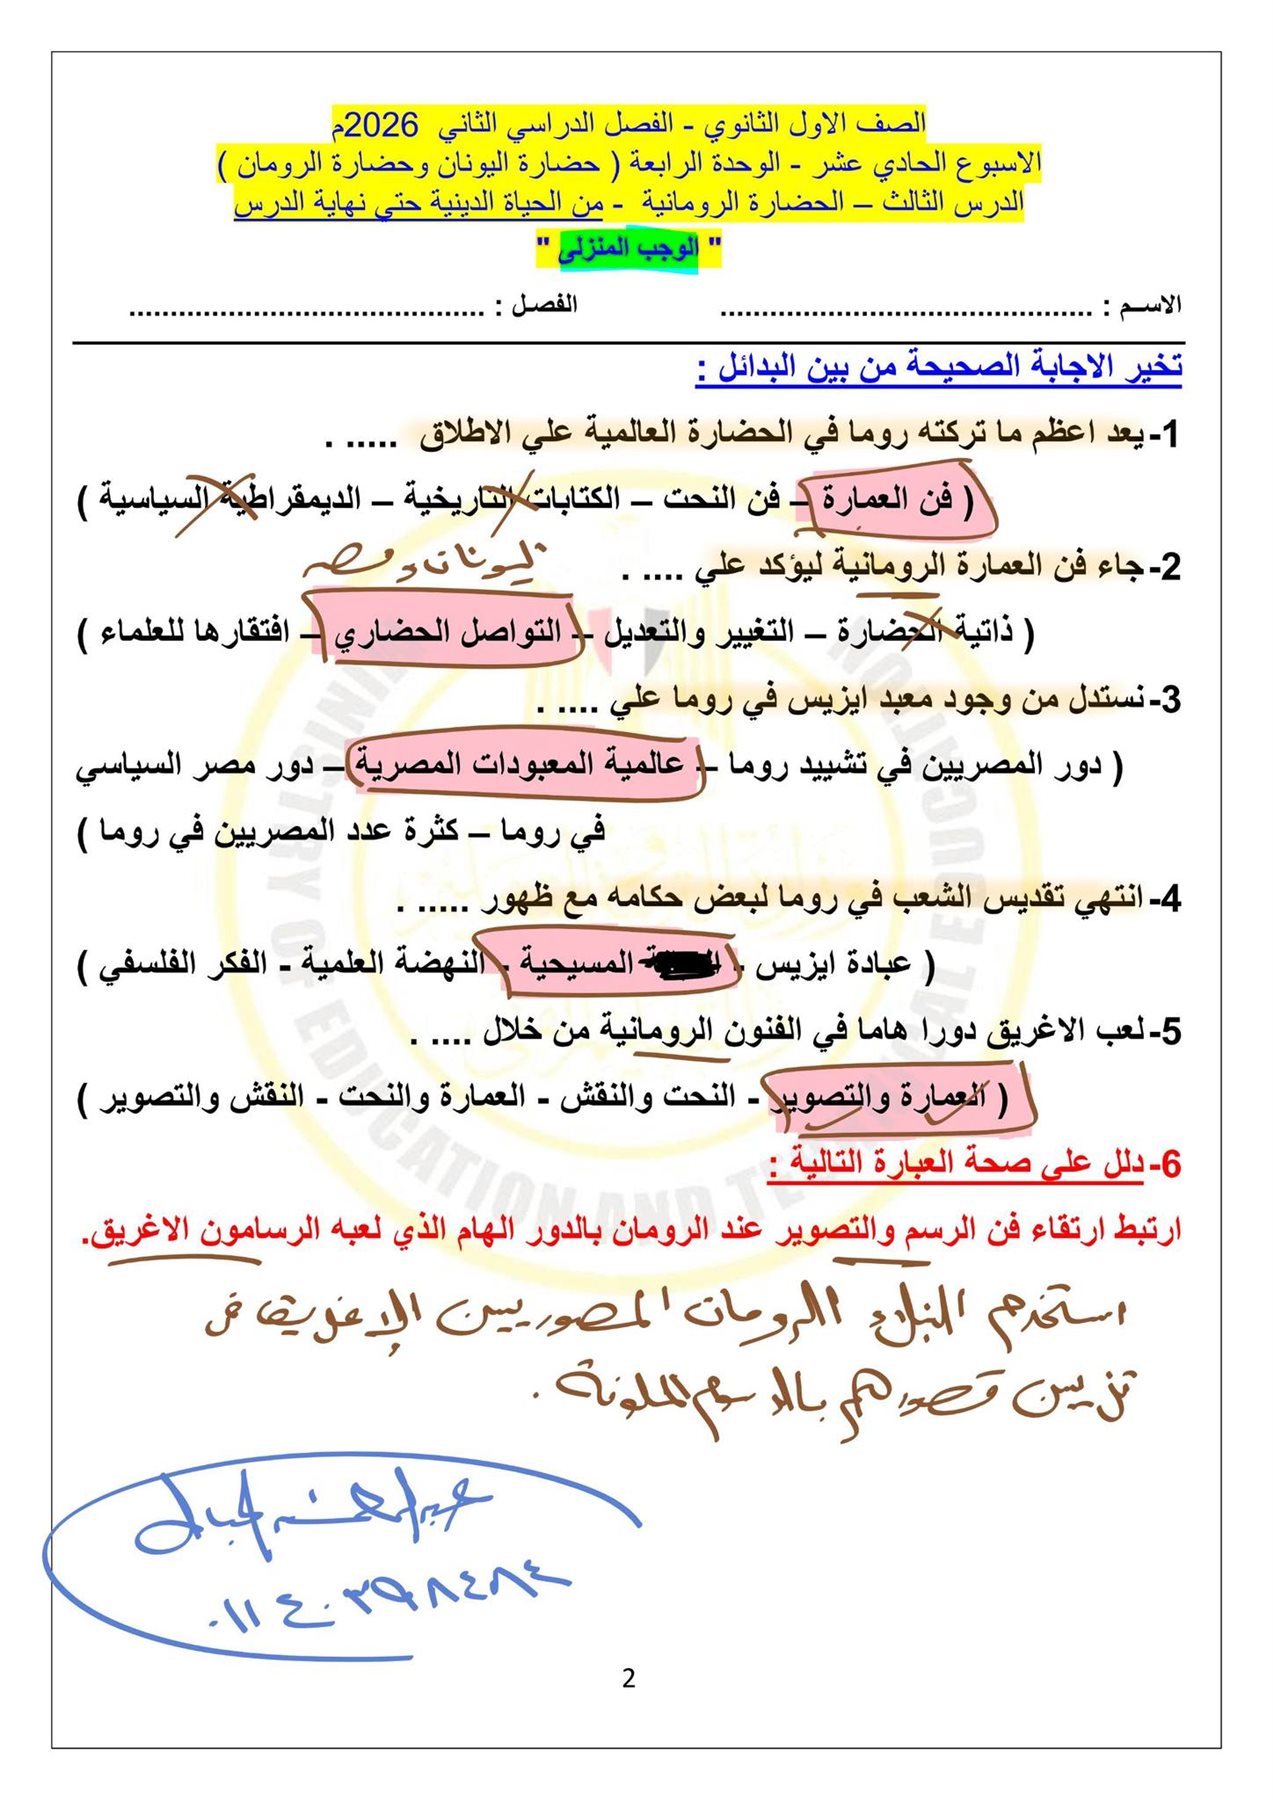 الصف الاول الثانوي - الفصل الدراسي الثاني 2026م
الاسبوع الحادي عشر - الوحدة الرابعة ( حضارة اليونان وحضارة الرومان )
الدرس الثالث – الحضارة الرومانية - من الحياة الدينية حتي نهاية الدرس
" الوجب المنزلى "
الاسـم : ............................................. الفصل : ...........................................
تخير الاجابة الصحيحة من بين البدائل :
1- يعد اعظم ما تركته روما في الحضارة العالمية علي الاطلاق ..... .
( فن العمارة – فن النحت – الكتابات التاريخية – الديمقراطية السياسية )
2- جاء فن العمارة الرومانية ليؤكد علي .... . اليونان ومصر
( ذاتية الحضارة – التغيير والتعديل – التواصل الحضاري – افتقارها للعلماء )
3- نستدل من وجود معبد ايزيس في روما علي .... .
( دور المصريين في تشييد روما – عالمية المعبودات المصرية – دور مصر السياسي
في روما – كثرة عدد المصريين في روما )
4- انتهي تقديس الشعب في روما لبعض حكامه مع ظهور ..... .
( عبادة ايزيس - المسيحية - النهضة العلمية - الفكر الفلسفي )
5- لعب الاغريق دورا هاما في الفنون الرومانية من خلال .... .
( العمارة والتصوير - النحت والنقش - العمارة والنحت - النقش والتصوير )
6- دلل علي صحة العبارة التالية :
ارتبط ارتقاء فن الرسم والتصوير عند الرومان بالدور الهام الذي لعبه الرسامون الاغريق.
استخدم النبلاء الرومان المصوريين الإغريق في
تزيين قصورهم بالرسوم الملونة .
عبد الرحمن
٠١١٤٠٣٩٨٤٨٤
2
MINISTRY OF EDUCATION AND TECHNICAL EDUCATION